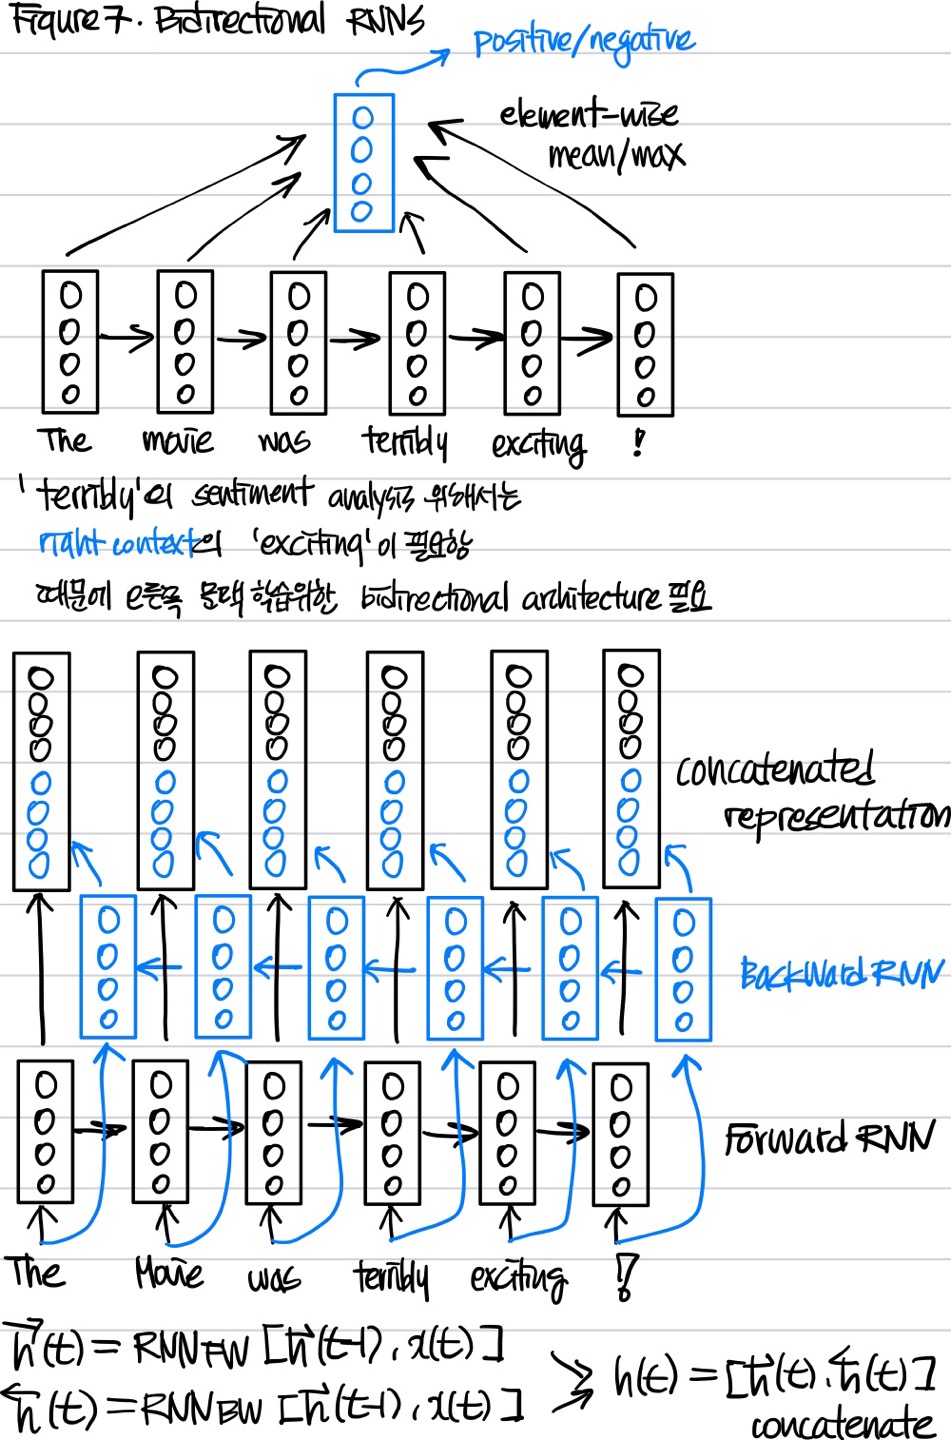 Figure 7. Bidirectional RNNs
positive/negative
element-wise
mean/max
The movie was terribly exciting !
'terribly'의 sentiment analysis 위해서는
right context의 'exciting'이 필요함
때문에 오른쪽 문맥 학습위한 bidirectional architecture 필요
concatenated
representation
Backward RNN
Forward RNN
The Movie was terribly exciting !
h→(t) = RNN FW [h→(t-1), x(t)]
h←(t) = RNN BW [h→(t-1), x(t)]
h(t) = [h→(t), h←(t)]
concatenate